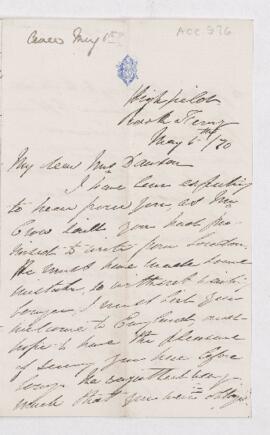 ACC 876
May
Highfield
Rock Ferry
May 6th/70
My dear Mrs Dawson
I have been expecting
to hear from you, as Mrs
Crow said you had pro-
mised to write from London.
She must have made some
mistake, so without waiting
longer, I must bid you
welcome to England and
hope to have the pleasure
of seeing you here before
long. He regretted very
much that you were obliged